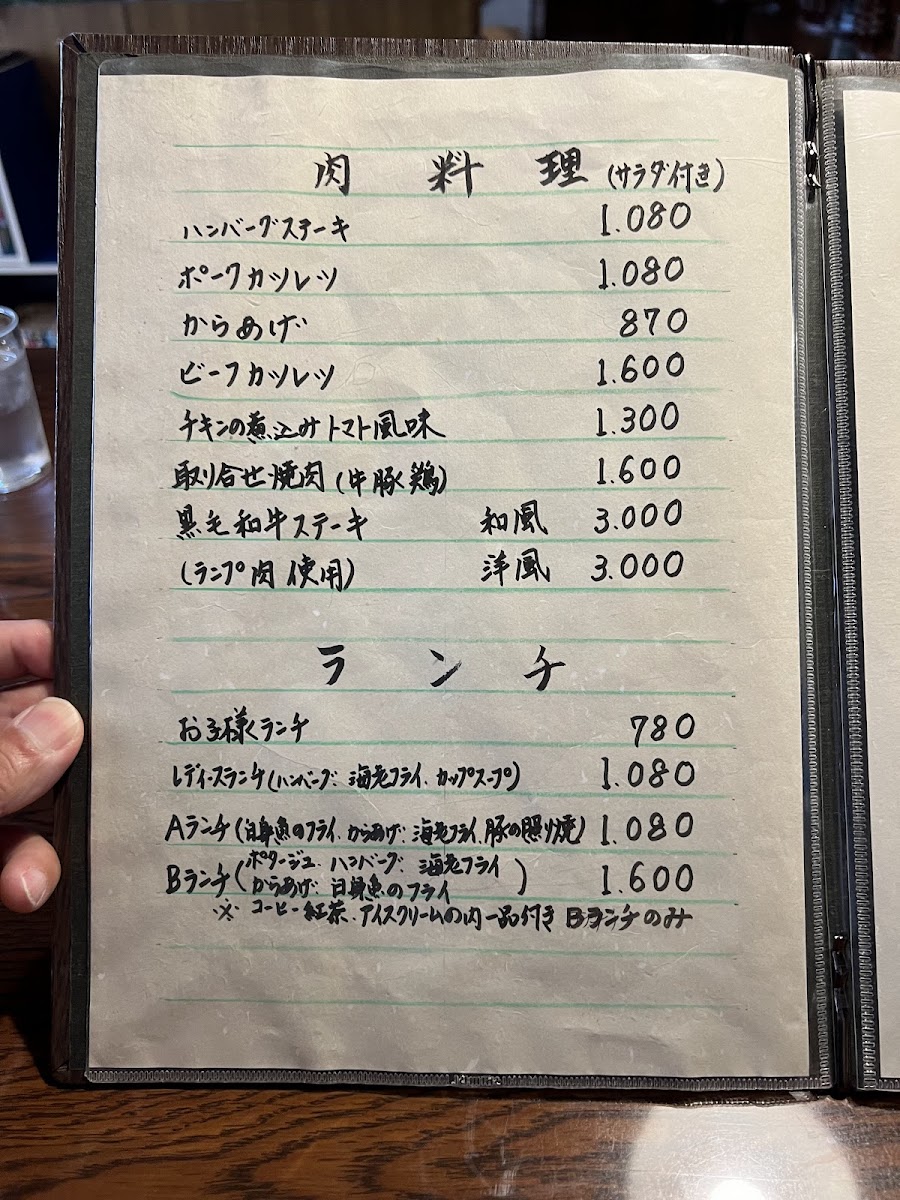 肉料理 (サラダ付き)
ハンバーグステーキ 1.080
ポークカツレツ 1.080
からあげ 870
ビーフカツレツ 1.600
チキンの煮込みトマト風味 1.300
取り合せ焼肉 (牛豚鶏) 1.600
黒毛和牛ステーキ 和風 3.000
(ランプ肉使用) 洋風 3.000
ランチ
お子様ランチ 780
レディースランチ (ハンバーグ、海老フライ、カップスープ) 1.080
Aランチ (白身魚のフライ、からあげ、海老フライ、豚の照り焼) 1.080
Bランチ (ポタージュ、ハンバーグ、海老フライ
からあげ、白身魚のフライ) 1.600
※ コーヒー紅茶、アイスクリームの内一品付き Bランチのみ